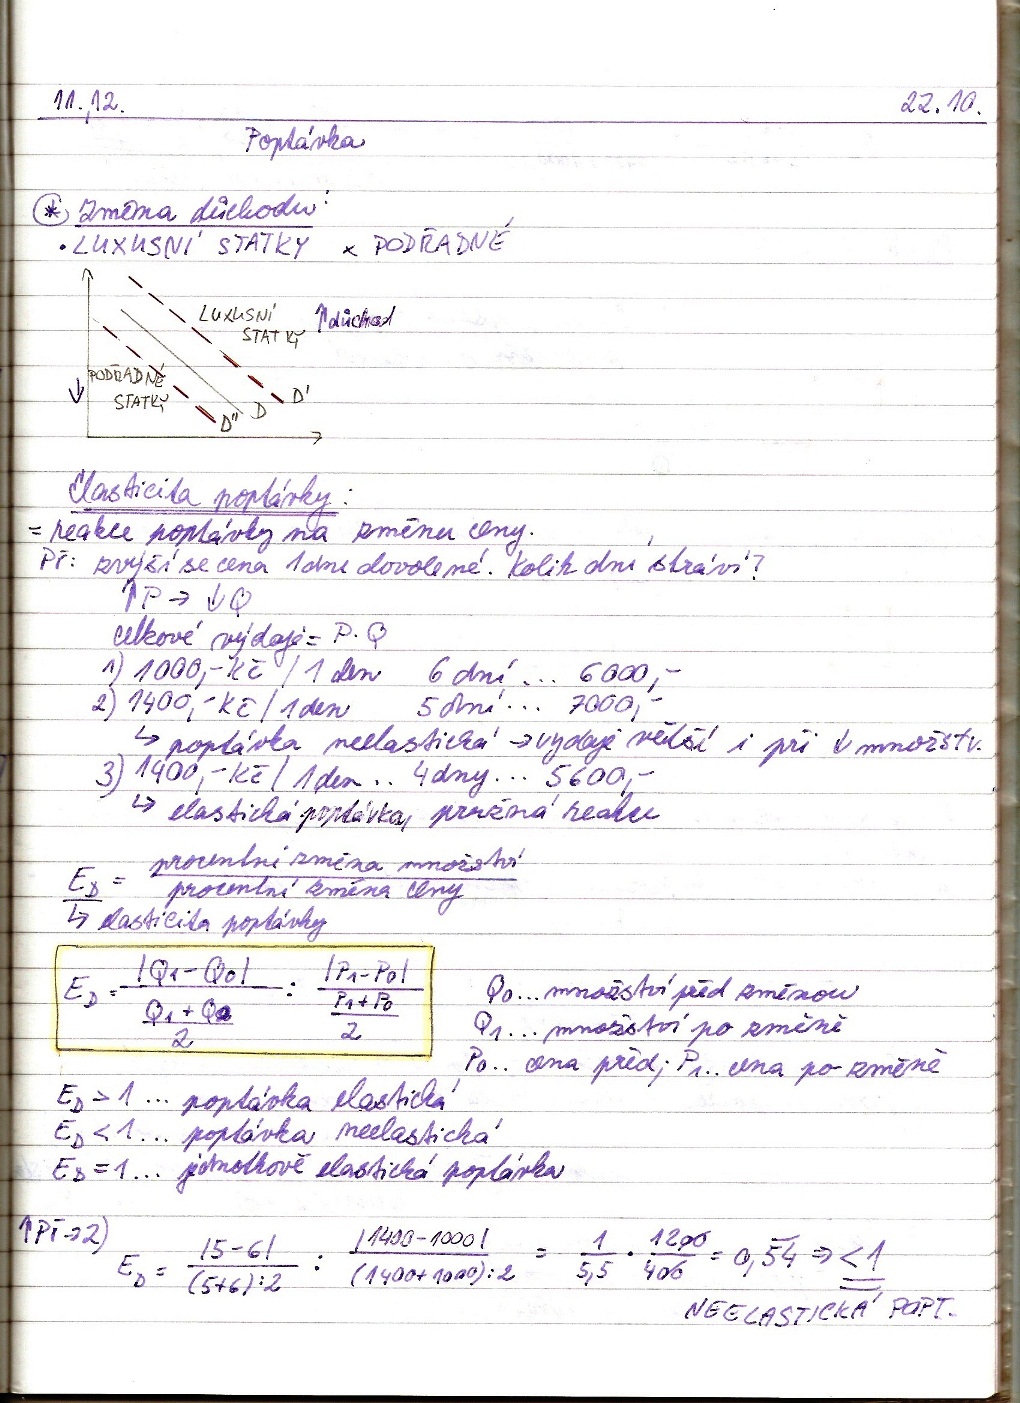 11.,12. 22.10.
Poptávka
* Změna důchodu:
• LUXUSNÍ STATKY x PODŘADNÉ
LUXUSNÍ ↑důchod
STATKY
PODŘADNÉ
↓ STATKY
D" D D'
Elasticita poptávky:
= reakce poptávky na změnu ceny.
Př: zvýší se cena 1 dne dovolené. Kolik dní stráví?
↑P → ↓Q
celkové výdaje = P·Q
1) 1000,- Kč / 1 den 6 dní ... 6000,-
2) 1400,- Kč / 1 den 5 dní ... 7000,-
↳ poptávka neelastická → výdaje větší i při ↓ množstv.
3) 1400,- Kč / 1 den .. 4 dny ... 5600,-
↳ elastická poptávka, pružná reakce
E_D = procentní změna množství / procentní změna ceny
↳ elasticita poptávky
E_D = |Q1-Q0| / ((Q1+Q0)/2) : |P1-P0| / ((P1+P0)/2)
Q0 ... množství před změnou
Q1 ... množství po změně
P0 .. cena před; P1 .. cena po změně
E_D > 1 ... poptávka elastická
E_D < 1 ... poptávka neelastická
E_D = 1 ... jednotkově elastická poptávka
↑Př → 2)
E_D = |5-6| / (5+6):2 : |1400-1000| / (1400+1000):2 = 1/5,5 · 1200/400 = 0,54 ⇒ < 1
NEELASTICKÁ POPT.